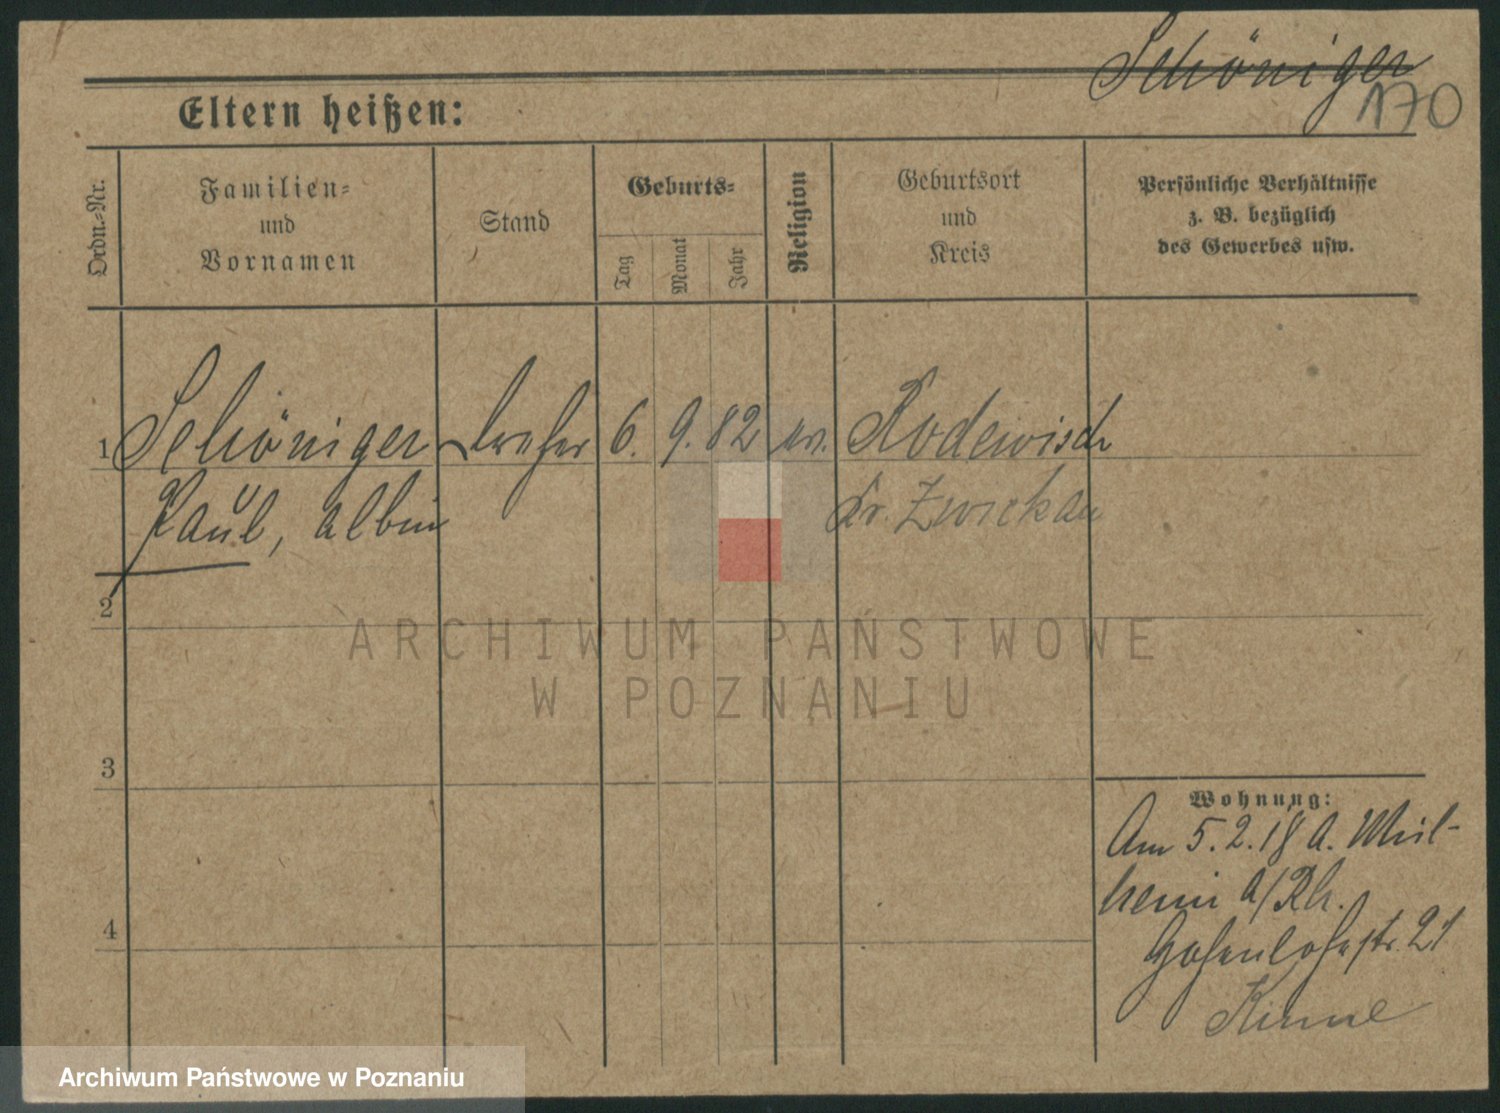 Schöniger
170
Eltern heißen:
Ordn.-Nr.
Familien-
und
Vornamen
Stand
Geburts-
Tag
Monat
Jahr
Religion
Geburtsort
und
Kreis
Persönliche Verhältnisse
z. B. bezüglich
des Gewerbes usw.
1 Schöniger Dreher 6. 9. 82 ev. Rodewisch
Paul, Albin Kr. Zwickau
2
ARCHIWUM PAŃSTWOWE
W POZNANIU
3
Wohnung:
Am 5.2.18 A. Mül-
heim a/Rh.
4
Hohenlohestr. 21
Archiwum Państwowe w Poznaniu